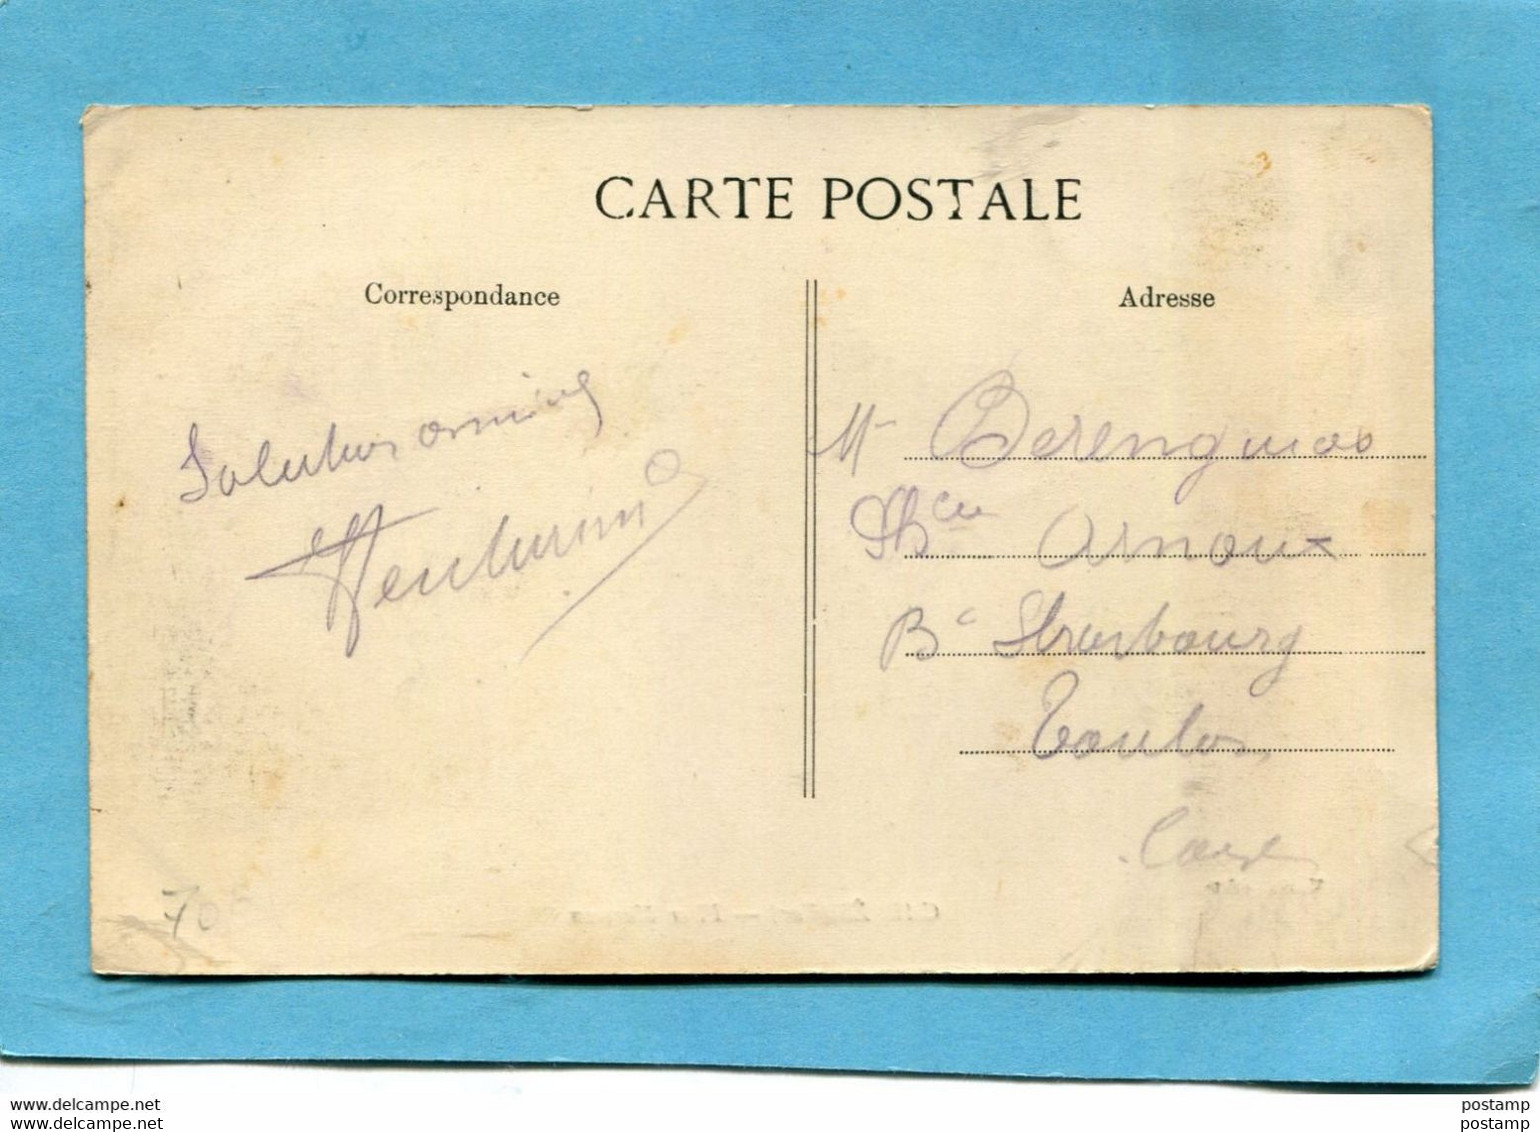 CARTE POSTALE
Correspondance
Adresse
Salutations amicales
Venturini
Mr Berenguier
Phcie Arnoux
Bd Strasbourg
Toulon
70
www.delcampe.net
postamp
www.delcampe.net
postamp